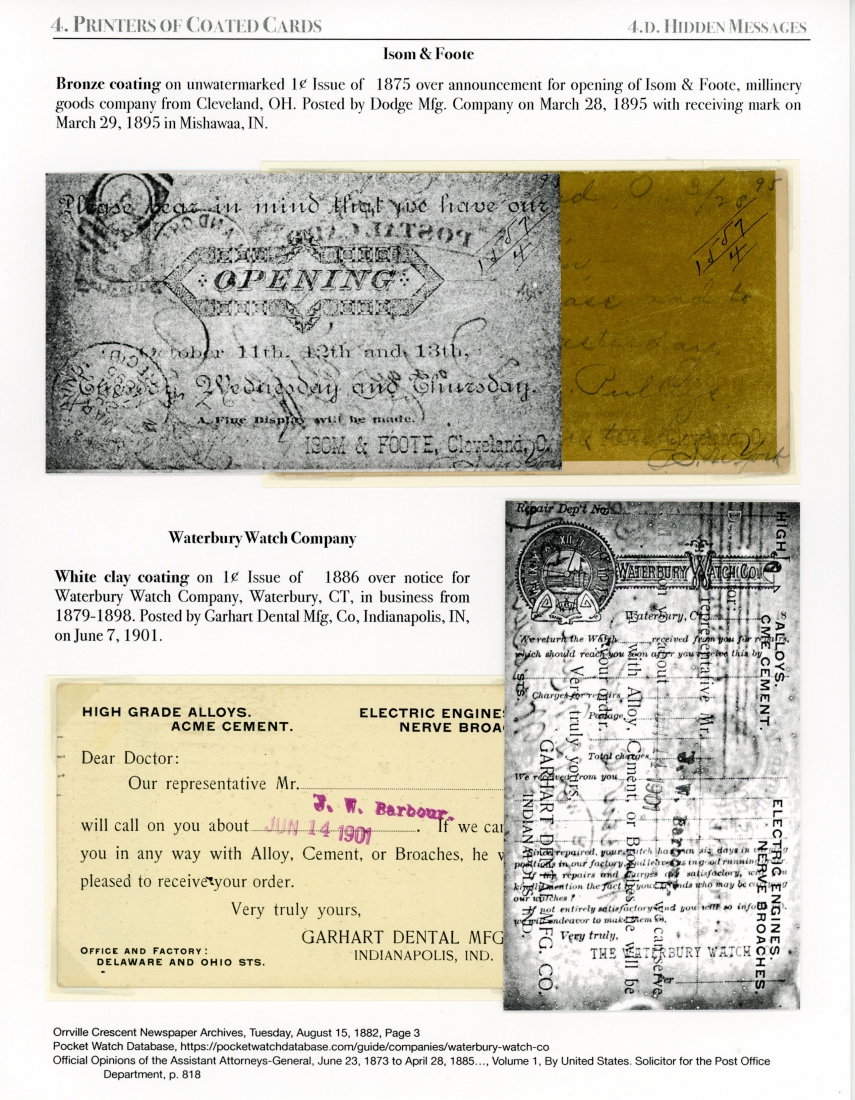 4. PRINTERS OF COATED CARDS
4.D. HIDDEN MESSAGES
Isom & Foote
Bronze coating on unwatermarked 1¢ Issue of 1875 over announcement for opening of Isom & Foote, millinery
goods company from Cleveland, OH. Posted by Dodge Mfg. Company on March 28, 1895 with receiving mark on
March 29, 1895 in Mishawaa, IN.
Please bear in mind that we have our
POSTAL CARD
OPENING
October 11th, 12th and 13th,
Tuesday, Wednesday and Thursday.
A Fine Display will be made.
ISOM & FOOTE, Cleveland, O.
1557
4
O. 3/28 95
1557
4
Waterbury Watch Company
White clay coating on 1¢ Issue of 1886 over notice for
Waterbury Watch Company, Waterbury, CT, in business from
1879-1898. Posted by Garhart Dental Mfg, Co, Indianapolis, IN,
on June 7, 1901.
HIGH GRADE ALLOYS.
ACME CEMENT.
ELECTRIC ENGINE
NERVE BROA
Dear Doctor:
Our representative Mr.
J. W. Barbour.
will call on you about JUN 14 1901. If we can
you in any way with Alloy, Cement, or Broaches, he w
pleased to receive your order.
Very truly yours,
GARHART DENTAL MFG
INDIANAPOLIS, IND.
OFFICE AND FACTORY:
DELAWARE AND OHIO STS.
Repair Dep't No.
WATERBURY WATCH CO.
Waterbury, C
We return the Watch received from you for
which should reach you soon after you receive this by
Charges for repairs,
Postage,
Total charges
We received from you
repaired, your watch has run six days in
positions in our factory, and leaves us in good running
If the repairs and charges are satisfactory, w
kindly mention the fact to your friends who may be
our watches?
If not entirely satisfactory and you will so info
we will endeavor to make them so.
Very truly,
THE WATERBURY WATCH
HIGH
ALLOYS.
CME CEMENT.
ELECTRIC ENGINES.
NERVE BROACHES.
representative Mr.
J. W. Barbour
about
1901
with Alloy, Cement, or Broaches he will be
your order.
Very truly yours,
GARHART DENTAL MFG. CO.
INDIANAPOLIS IND.
STS.
Orrville Crescent Newspaper Archives, Tuesday, August 15, 1882, Page 3
Pocket Watch Database, https://pocketwatchdatabase.com/guide/companies/waterbury-watch-co
Official Opinions of the Assistant Attorneys-General, June 23, 1873 to April 28, 1885..., Volume 1, By United States. Solicitor for the Post Office
Department, p. 818